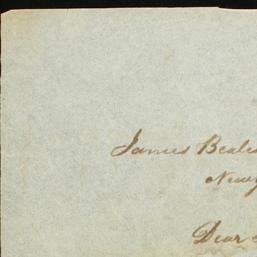 James Beales
New
Dear